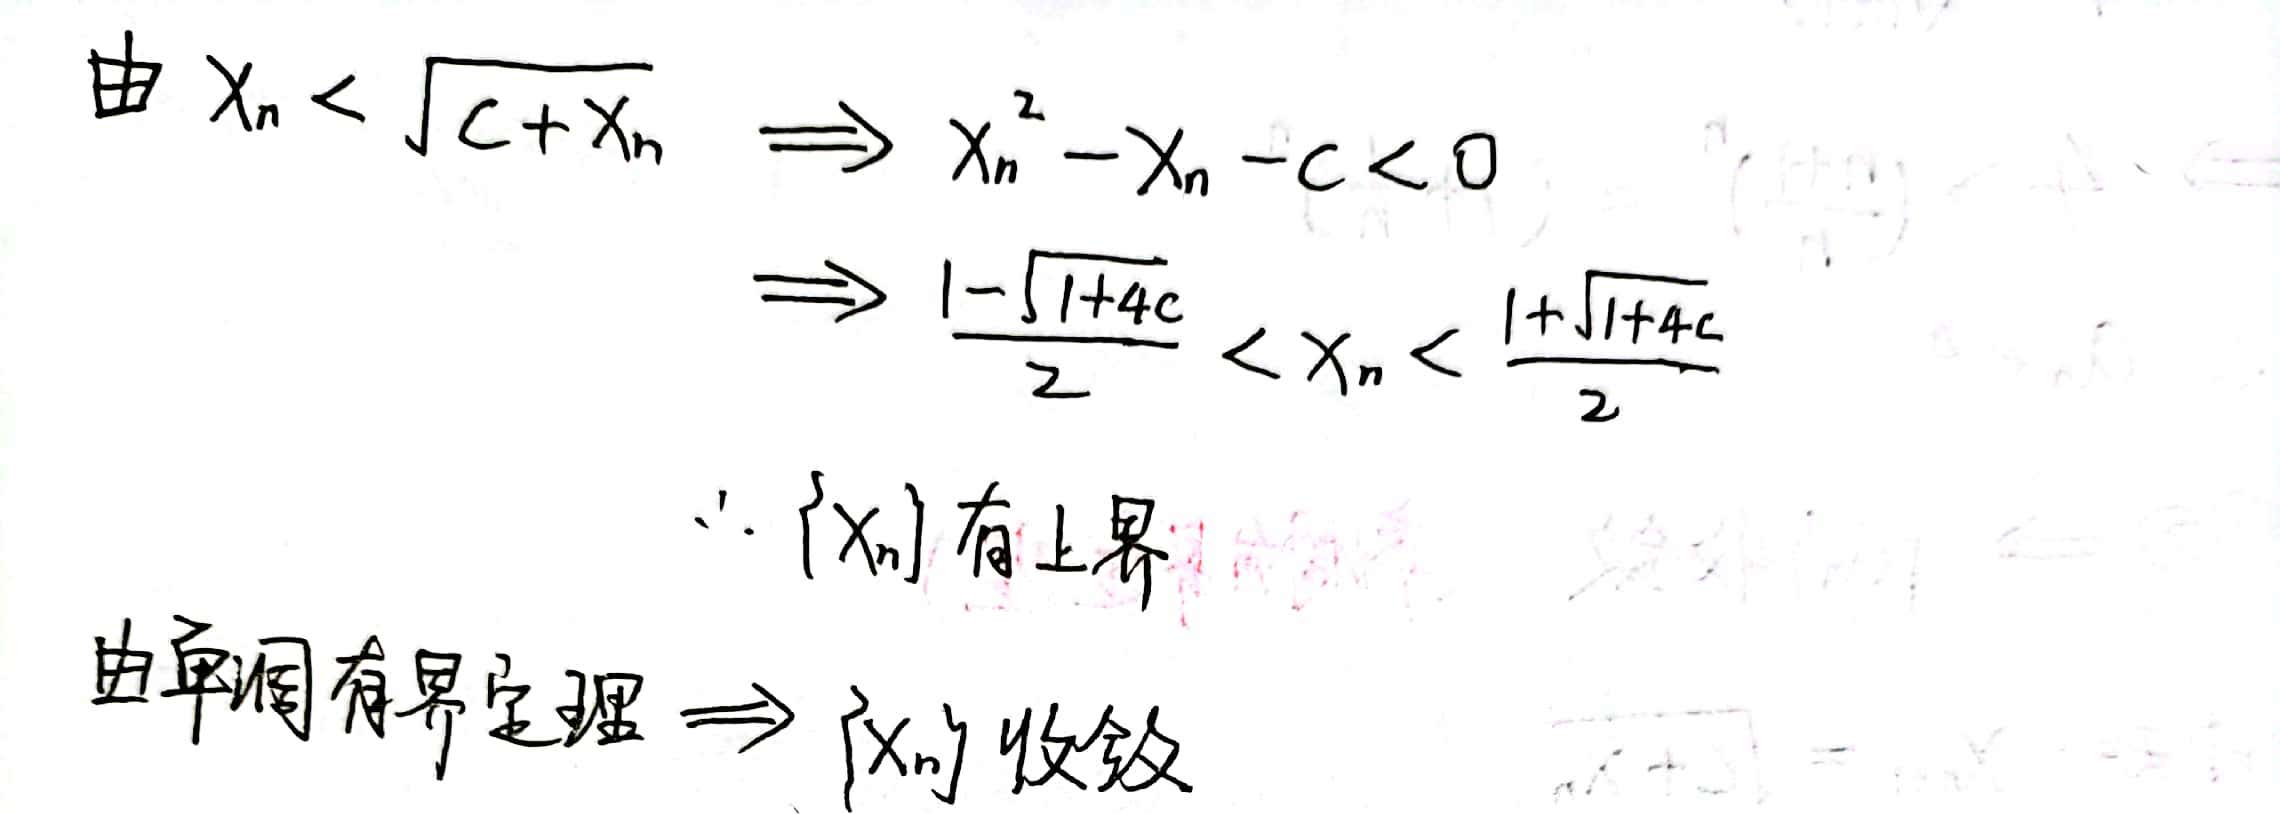 由 Xn < √(C+Xn) ⟹ Xn² − Xn − C < 0
⟹ (1−√(1+4C))/2 < Xn < (1+√(1+4C))/2
∴ {Xn} 有上界
由单调有界定理 ⟹ {Xn} 收敛